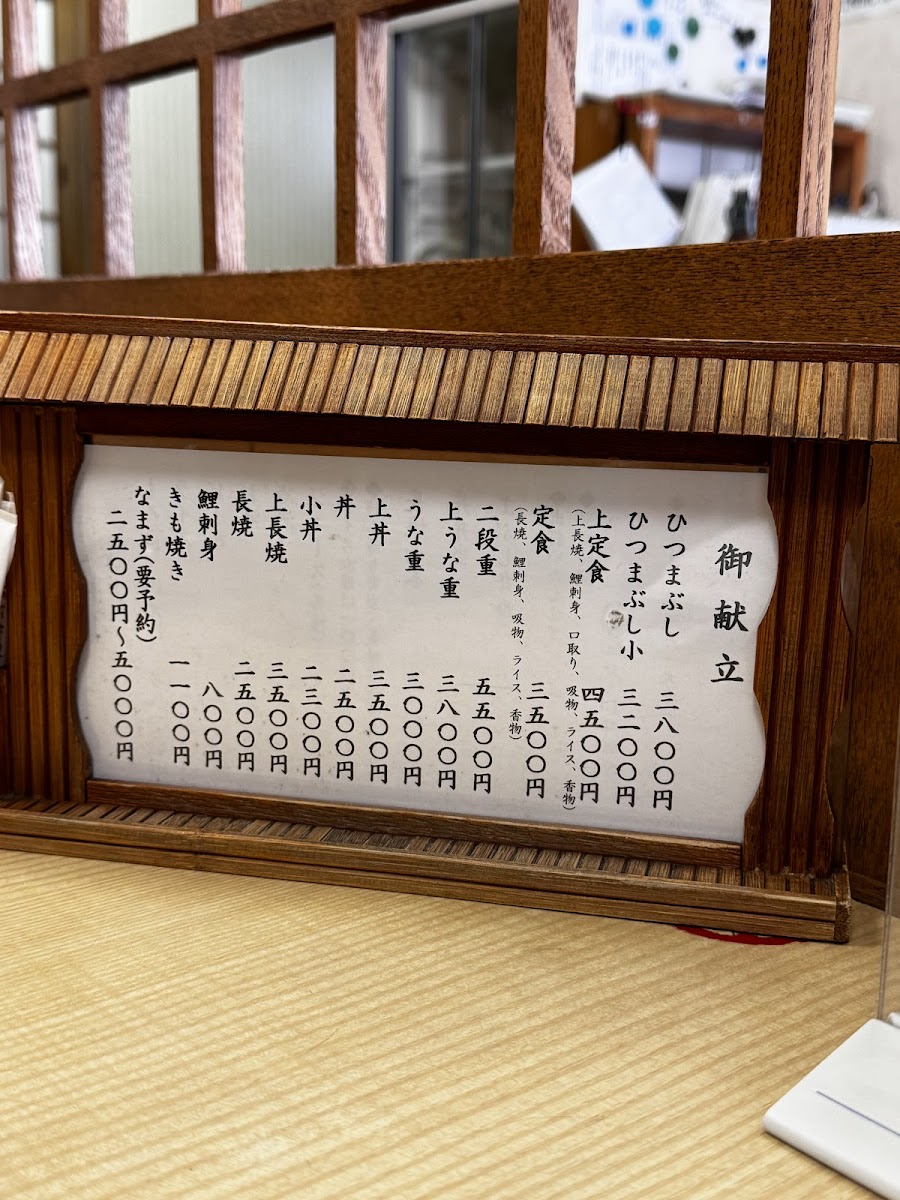 御献立
ひつまぶし 三八〇〇円
ひつまぶし小 三二〇〇円
上定食 四五〇〇円
(上長焼、鯉刺身、口取り、吸物、ライス、香物)
定食 三五〇〇円
(長焼、鯉刺身、吸物、ライス、香物)
二段重 五五〇〇円
上うな重 三八〇〇円
うな重 三〇〇〇円
上丼 三五〇〇円
丼 二五〇〇円
小丼 二三〇〇円
上長焼 三五〇〇円
長焼 二五〇〇円
鯉刺身 八〇〇円
きも焼き 一一〇〇円
なまず(要予約)
二五〇〇円〜五〇〇〇円